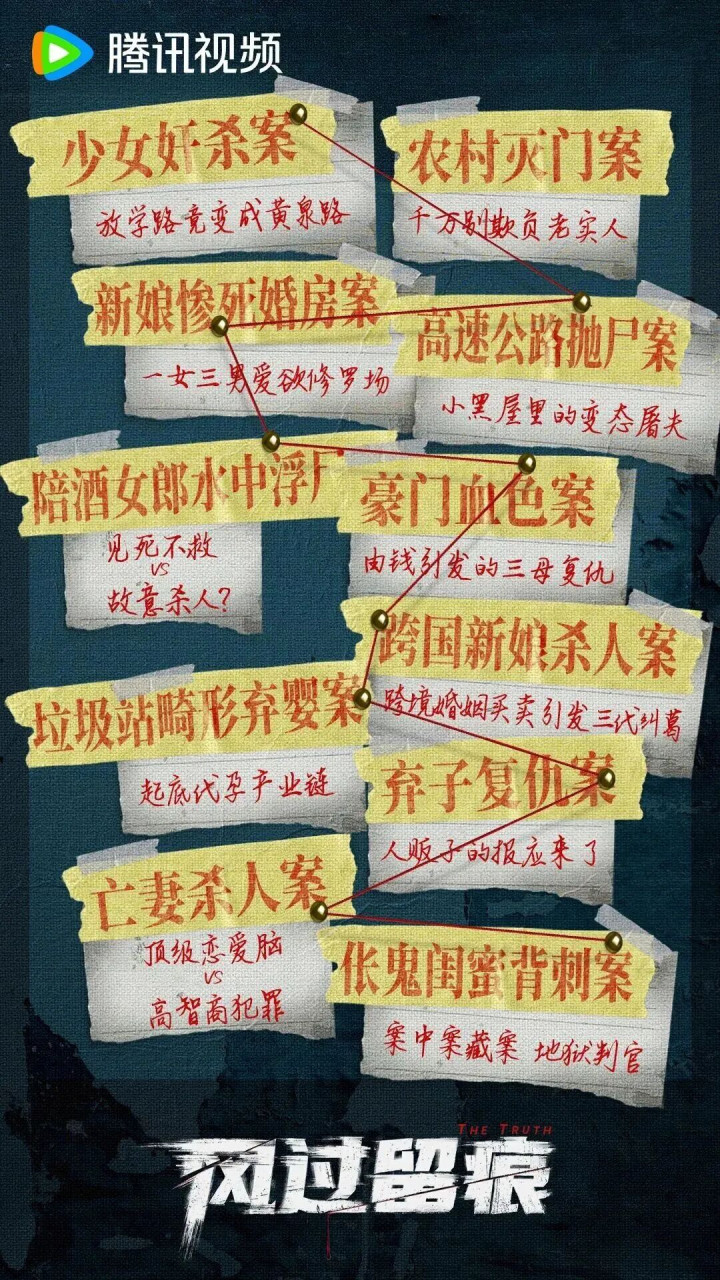 腾讯视频
少女奸杀案
放学路竟变成黄泉路
农村灭门案
千万别欺负老实人
新娘惨死婚房案
一女三男爱欲修罗场
高速公路抛尸案
小黑屋里的变态屠夫
陪酒女郎水中浮尸
见死不救
VS
故意杀人?
豪门血色案
由钱引发的三母复仇
跨国新娘杀人案
跨境婚姻买卖引发三代纠葛
垃圾站畸形弃婴案
起底代孕产业链
弃子复仇案
人贩子的报应来了
亡妻杀人案
顶级恋爱脑
VS
高智商犯罪
伥鬼闺蜜背刺案
案中案藏案 地狱判官
THE TRUTH
风过留痕